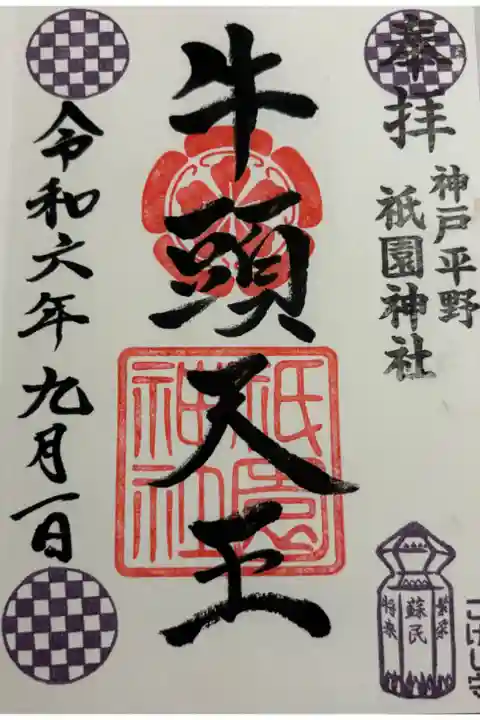 奉拝
神戸平野
祇園神社
牛頭天王
祇園
神社
令和六年九月一日
蘇民
将来
繁栄
こけし守